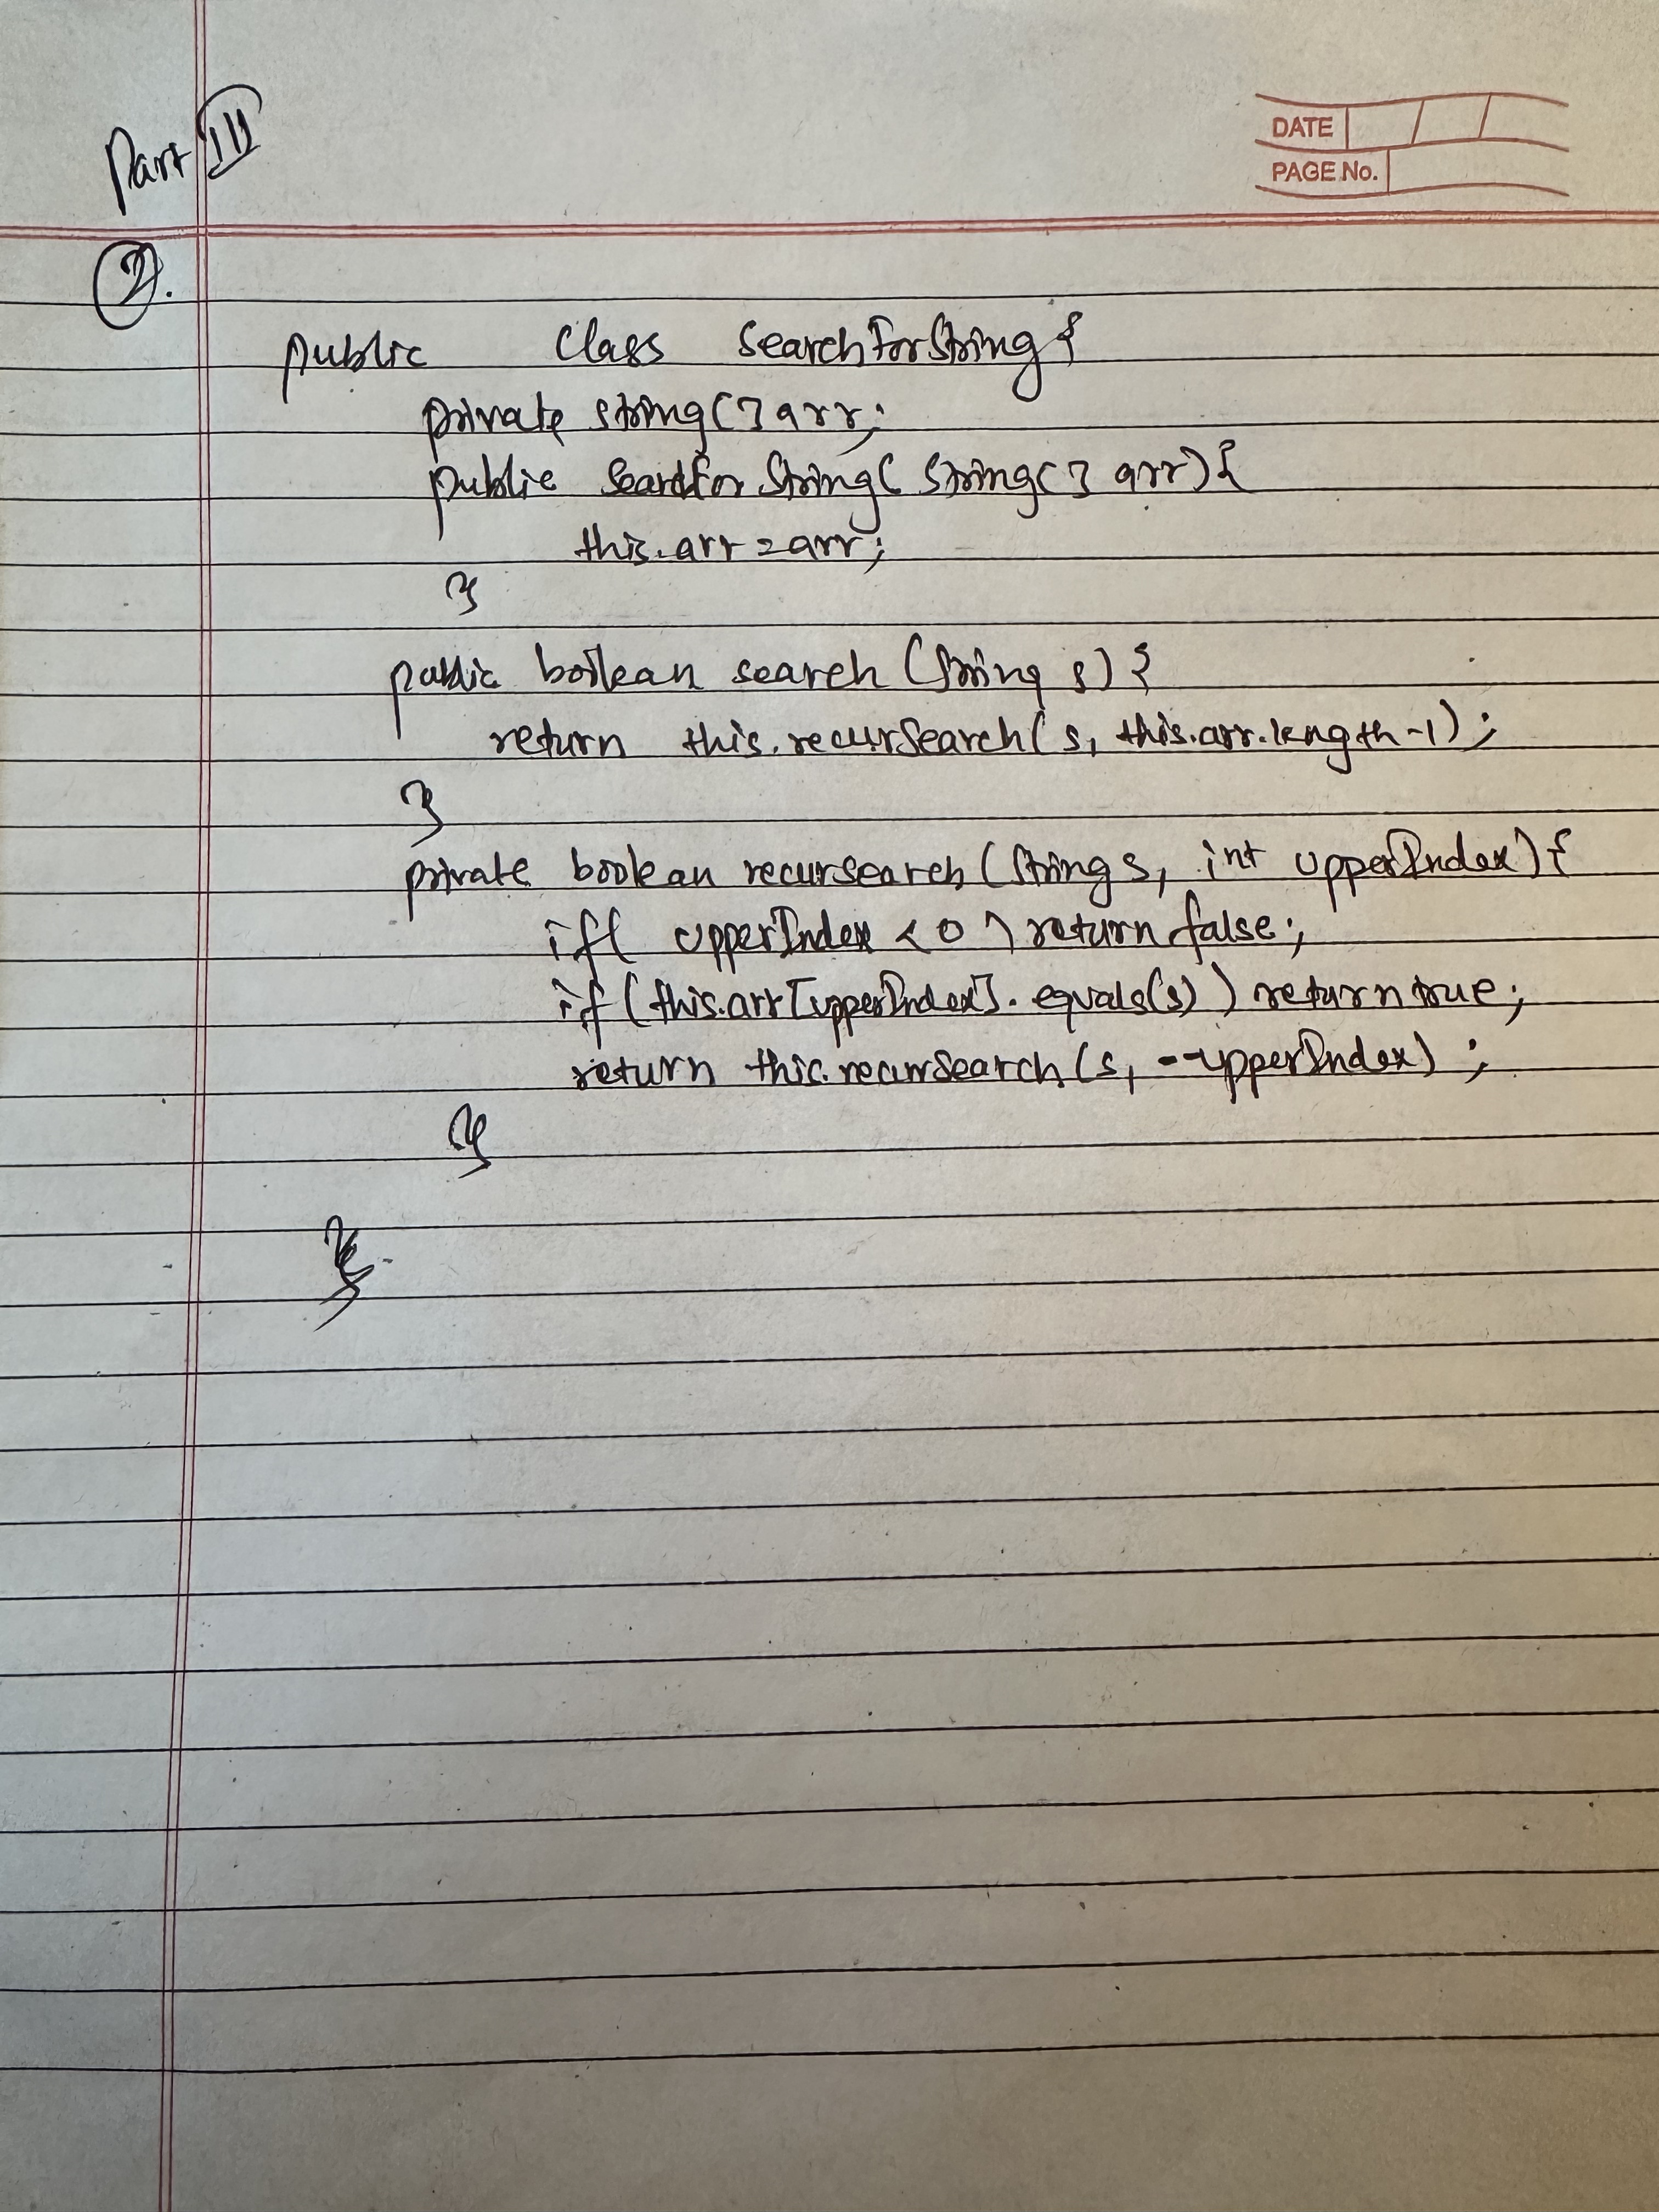 Part III
DATE
PAGE No.
2.
public class SearchForString {
private string[] arr;
public SearchForString( String[] arr) {
this.arr = arr;
}
public boolean search (String s) {
return this.recurSearch( s, this.arr.length-1);
}
private boolean recursearch (String s, int upperIndex) {
if( upperIndex < 0 ) return false;
if (this.arr[upperIndex]. equals(s) ) return true;
return this.recurSearch (s, --upperIndex) ;
}
}